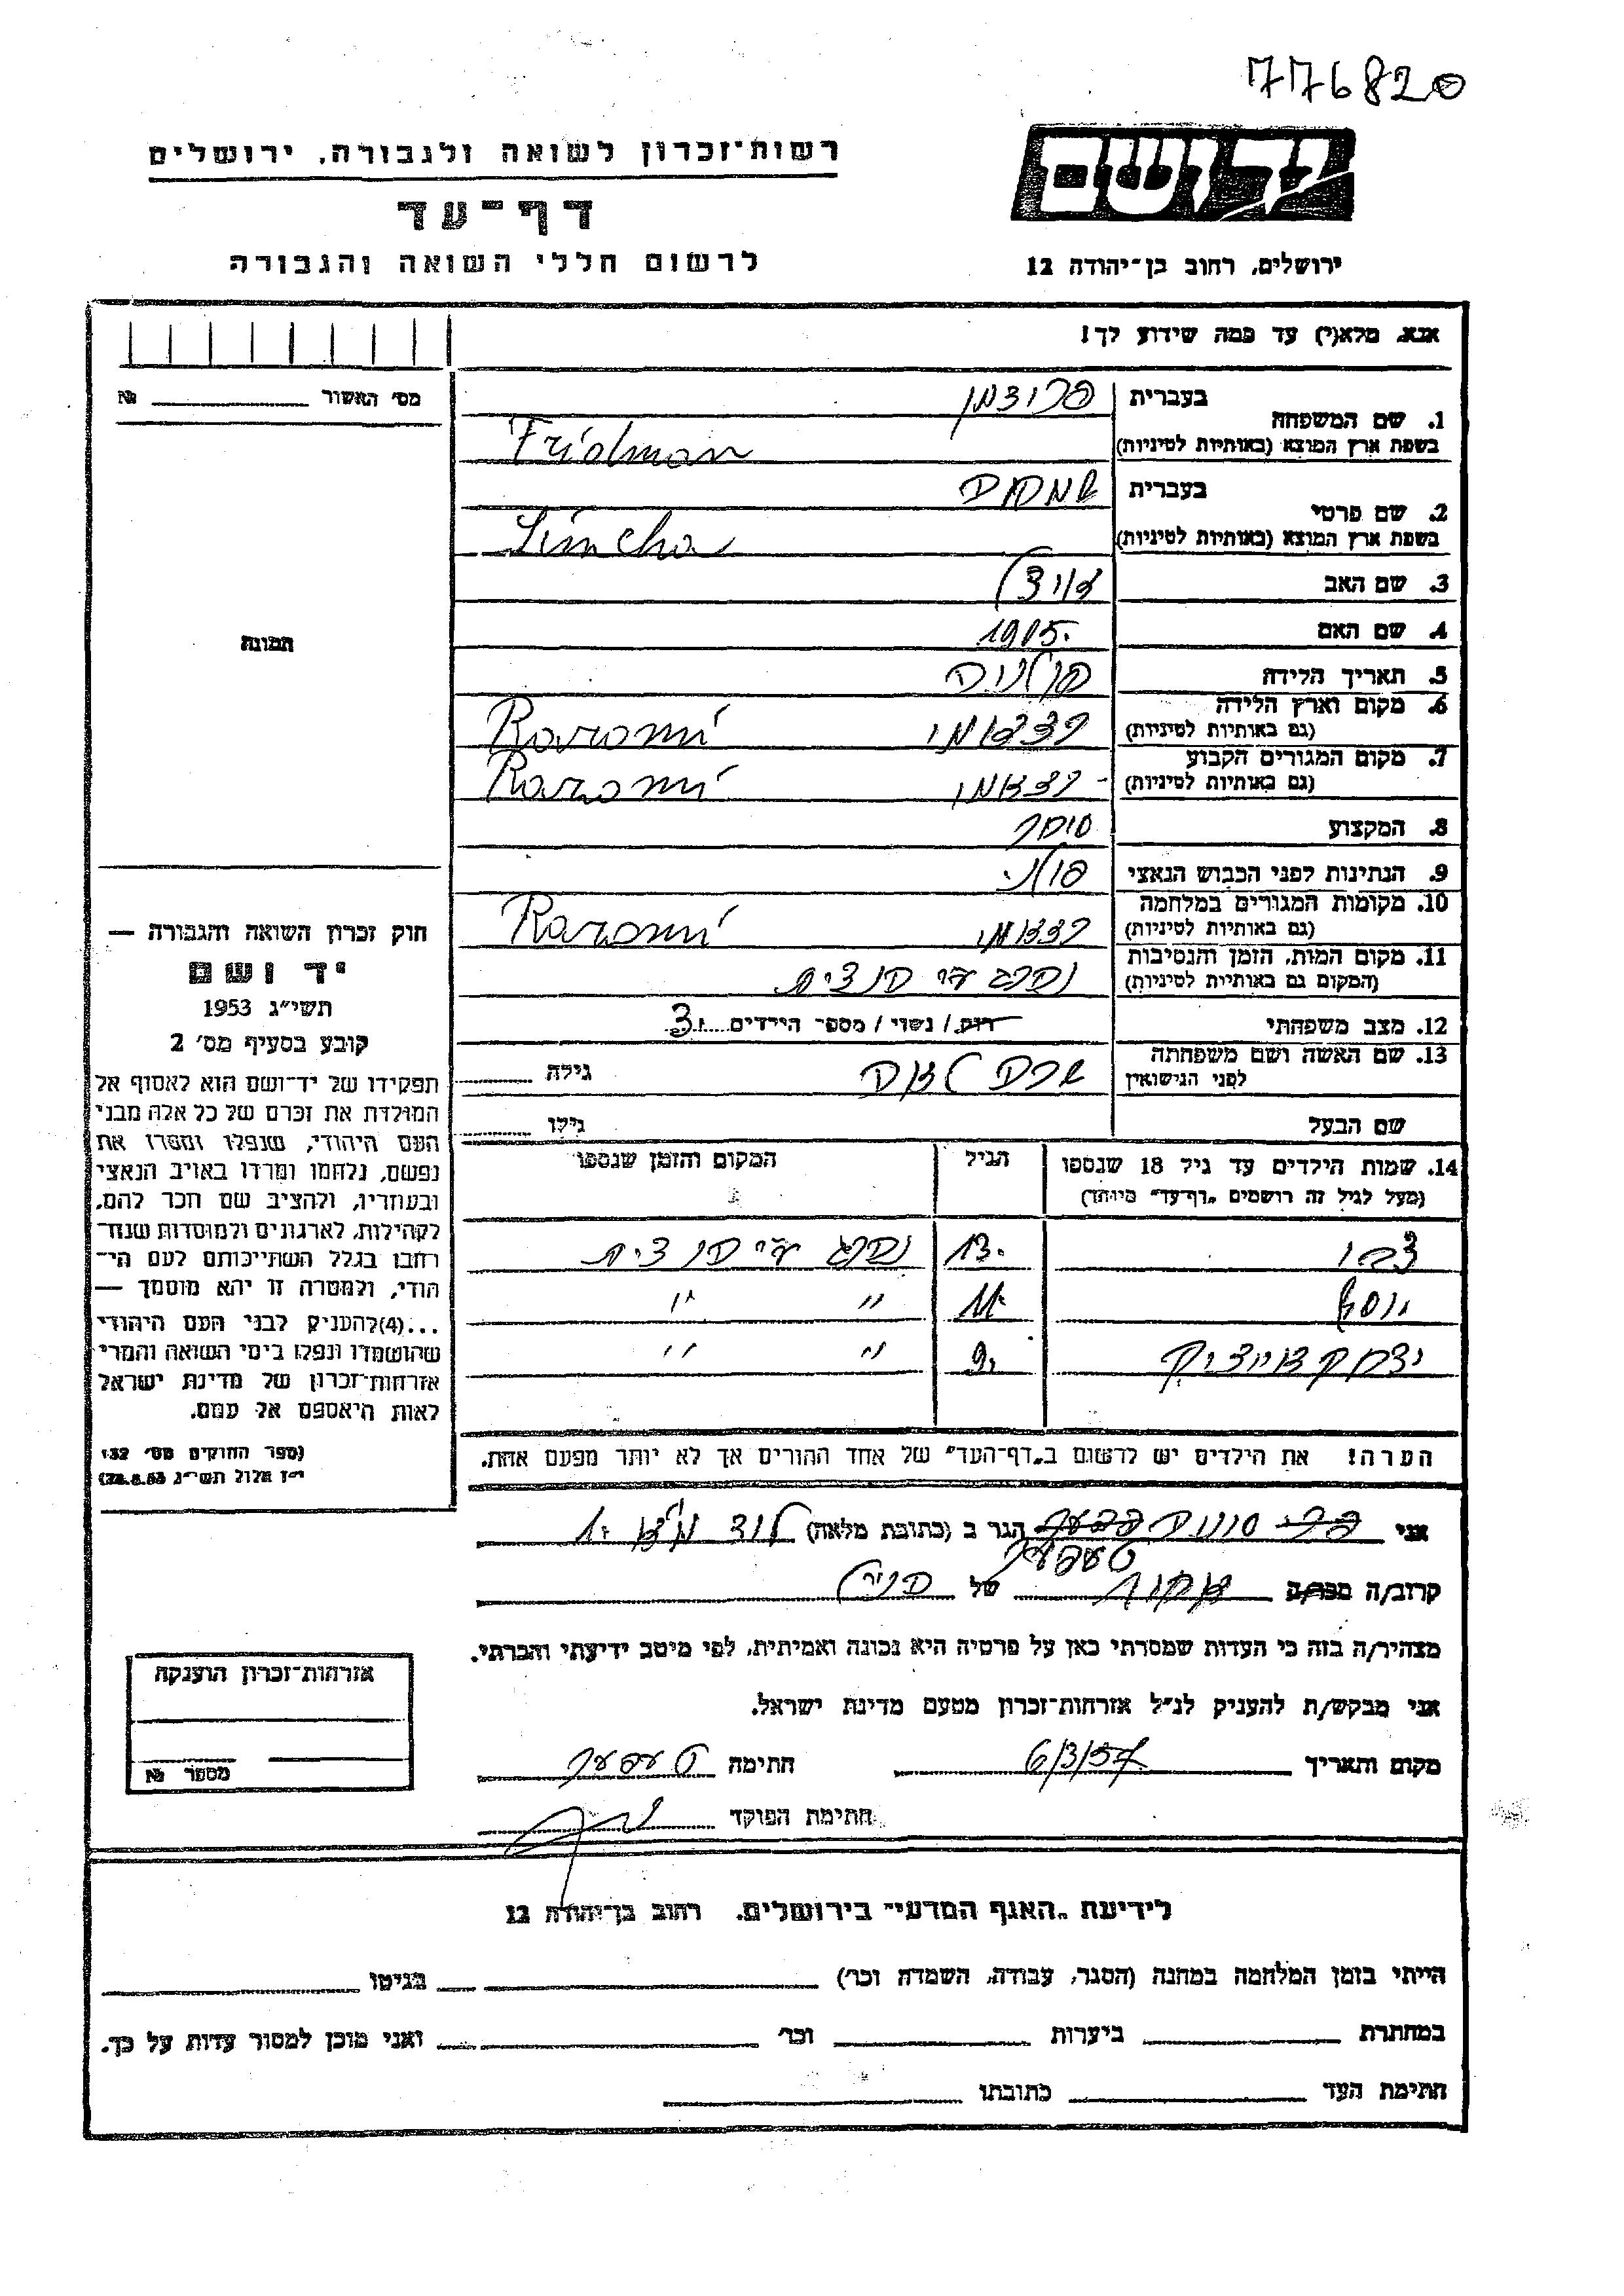 776820
יד ושם
רשות־זכרון לשואה ולגבורה, ירושלים
דף־עד
לרשום חללי השואה והגבורה
ירושלים, רחוב בן־יהודה 12
אנא, מלא(י) עד כמה שידוע לך!
מס׳ האשור №
1. שם המשפחה בעברית פרידמן
בשפת ארץ המוצא (באותיות לטיניות) Fridman
2. שם פרטי בעברית
בשפת ארץ המוצא (באותיות לטיניות) Simcha
3. שם האב דוד
4. שם האם 1905.
5. תאריך הלידה
6. מקום וארץ הלידה
(גם באותיות לטיניות)
7. מקום המגורים הקבוע
(גם באותיות לטיניות)
8. המקצוע סוחר
9. הנתינות לפני הכבוש הנאצי פולני
10. מקומות המגורים במלחמה
(גם באותיות לטיניות)
11. מקום המות, הזמן והנסיבות
(המקום גם באותיות לטיניות)
12. מצב משפחתי רוק / נשוי / מספר הילדים 3
13. שם האשה ושם משפחתה
לפני הנישואין
גילה
שם הבעל גילו
14. שמות הילדים עד גיל 18 שנספו הגיל המקום והזמן שנספו
(מעל לגיל זה רושמים „דף־עד" מיוחד)
13.
יוסף 11. " "
יצחק 9. " "
הערה! את הילדים יש לרשום ב„דף־העד" של אחד ההורים אך לא יותר מפעם אחת.
תמונה
חוק זכרון השואה והגבורה —
יד ושם
תשי״ג 1953
קובע בסעיף מס׳ 2
תפקידו של יד־ושם הוא לאסוף אל
המולדת את זכרם של כל אלה מבני
העם היהודי, שנפלו ומסרו את
נפשם, נלחמו ומרדו באויב הנאצי
ובעוזריו, ולהציב שם וזכר להם,
לקהילות, לארגונים ולמוסדות שנח־
רבו בגלל השתייכותם לעם הי־
הודי, ולמטרה זו יהא מוסמך —
...(4) להעניק לבני העם היהודי
שהושמדו ונפלו בימי השואה והמרי
אזרחות־זכרון של מדינת ישראל
לאות היאספם אל עמם.
(ספר החוקים מס׳ 132
י״ז אלול תשי״ג 28.8.53)
אני הגר ב (כתובת מלאה)
קרוב/ה מכר/ה של
מצהיר/ה בזה כי העדות שמסרתי כאן על פרטיה היא נכונה ואמיתית, לפי מיטב ידיעתי והכרתי.
אני מבקש/ת להעניק לנ״ל אזרחות־זכרון מטעם מדינת ישראל.
מקום ותאריך 6/3/57 חתימה
חתימת הפוקד
אזרחות־זכרון הוענקה
מספר №
לידיעת „האגף המדעי" בירושלים, רחוב בן־יהודה 12
הייתי בזמן המלחמה במחנה (הסגר, עבודה, השמדה וכו׳) בגיטו
במחתרת ביערות וכו׳ ואני מוכן למסור עדות על כך.
חתימת העד כתובתו